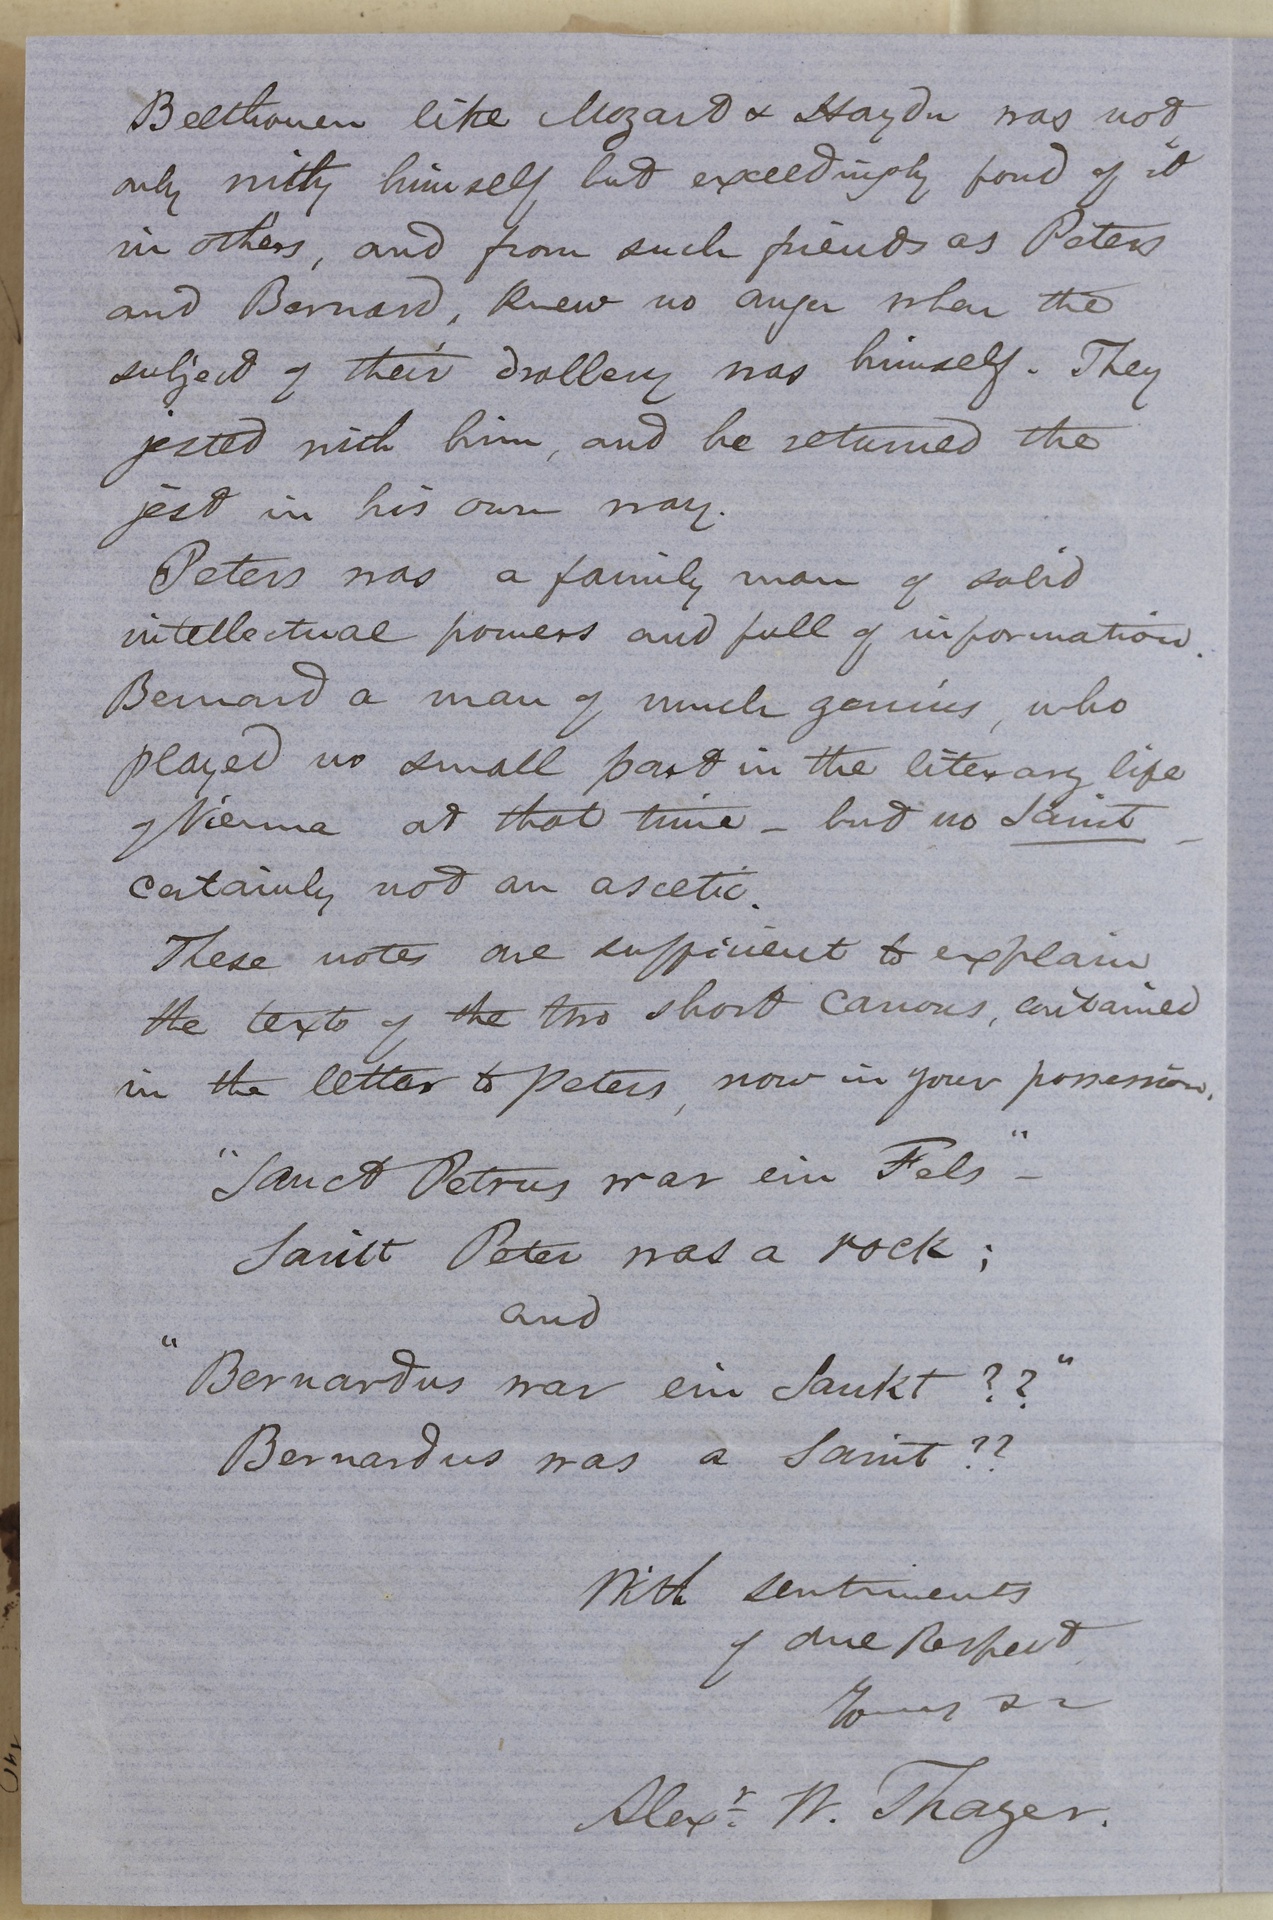 Beethoven like Mozart & Haydn was not
only witty himself but exceedingly fond of it
in others, and from such friends as Peters
and Bernard, knew no anger when the
subject of their drollery was himself. They
jested with him, and he returned the
jest in his own way.
Peters was a family man of solid
intellectual powers and full of information.
Bernard a man of much genius, who
played no small part in the literary life
of Vienna at that time – but no Saint –
certainly not an ascetic.
These notes are sufficient to explain
the texts of the two short canons, contained
in the letter to Peters, now in your possession.
"Sanct Petrus war ein Fels" –
Saint Peter was a rock;
and
"Bernardus war ein Sankt ??"
Bernardus was a Saint ??
With sentiments
of due Respect
Yours &c
Alexr. W. Thayer.